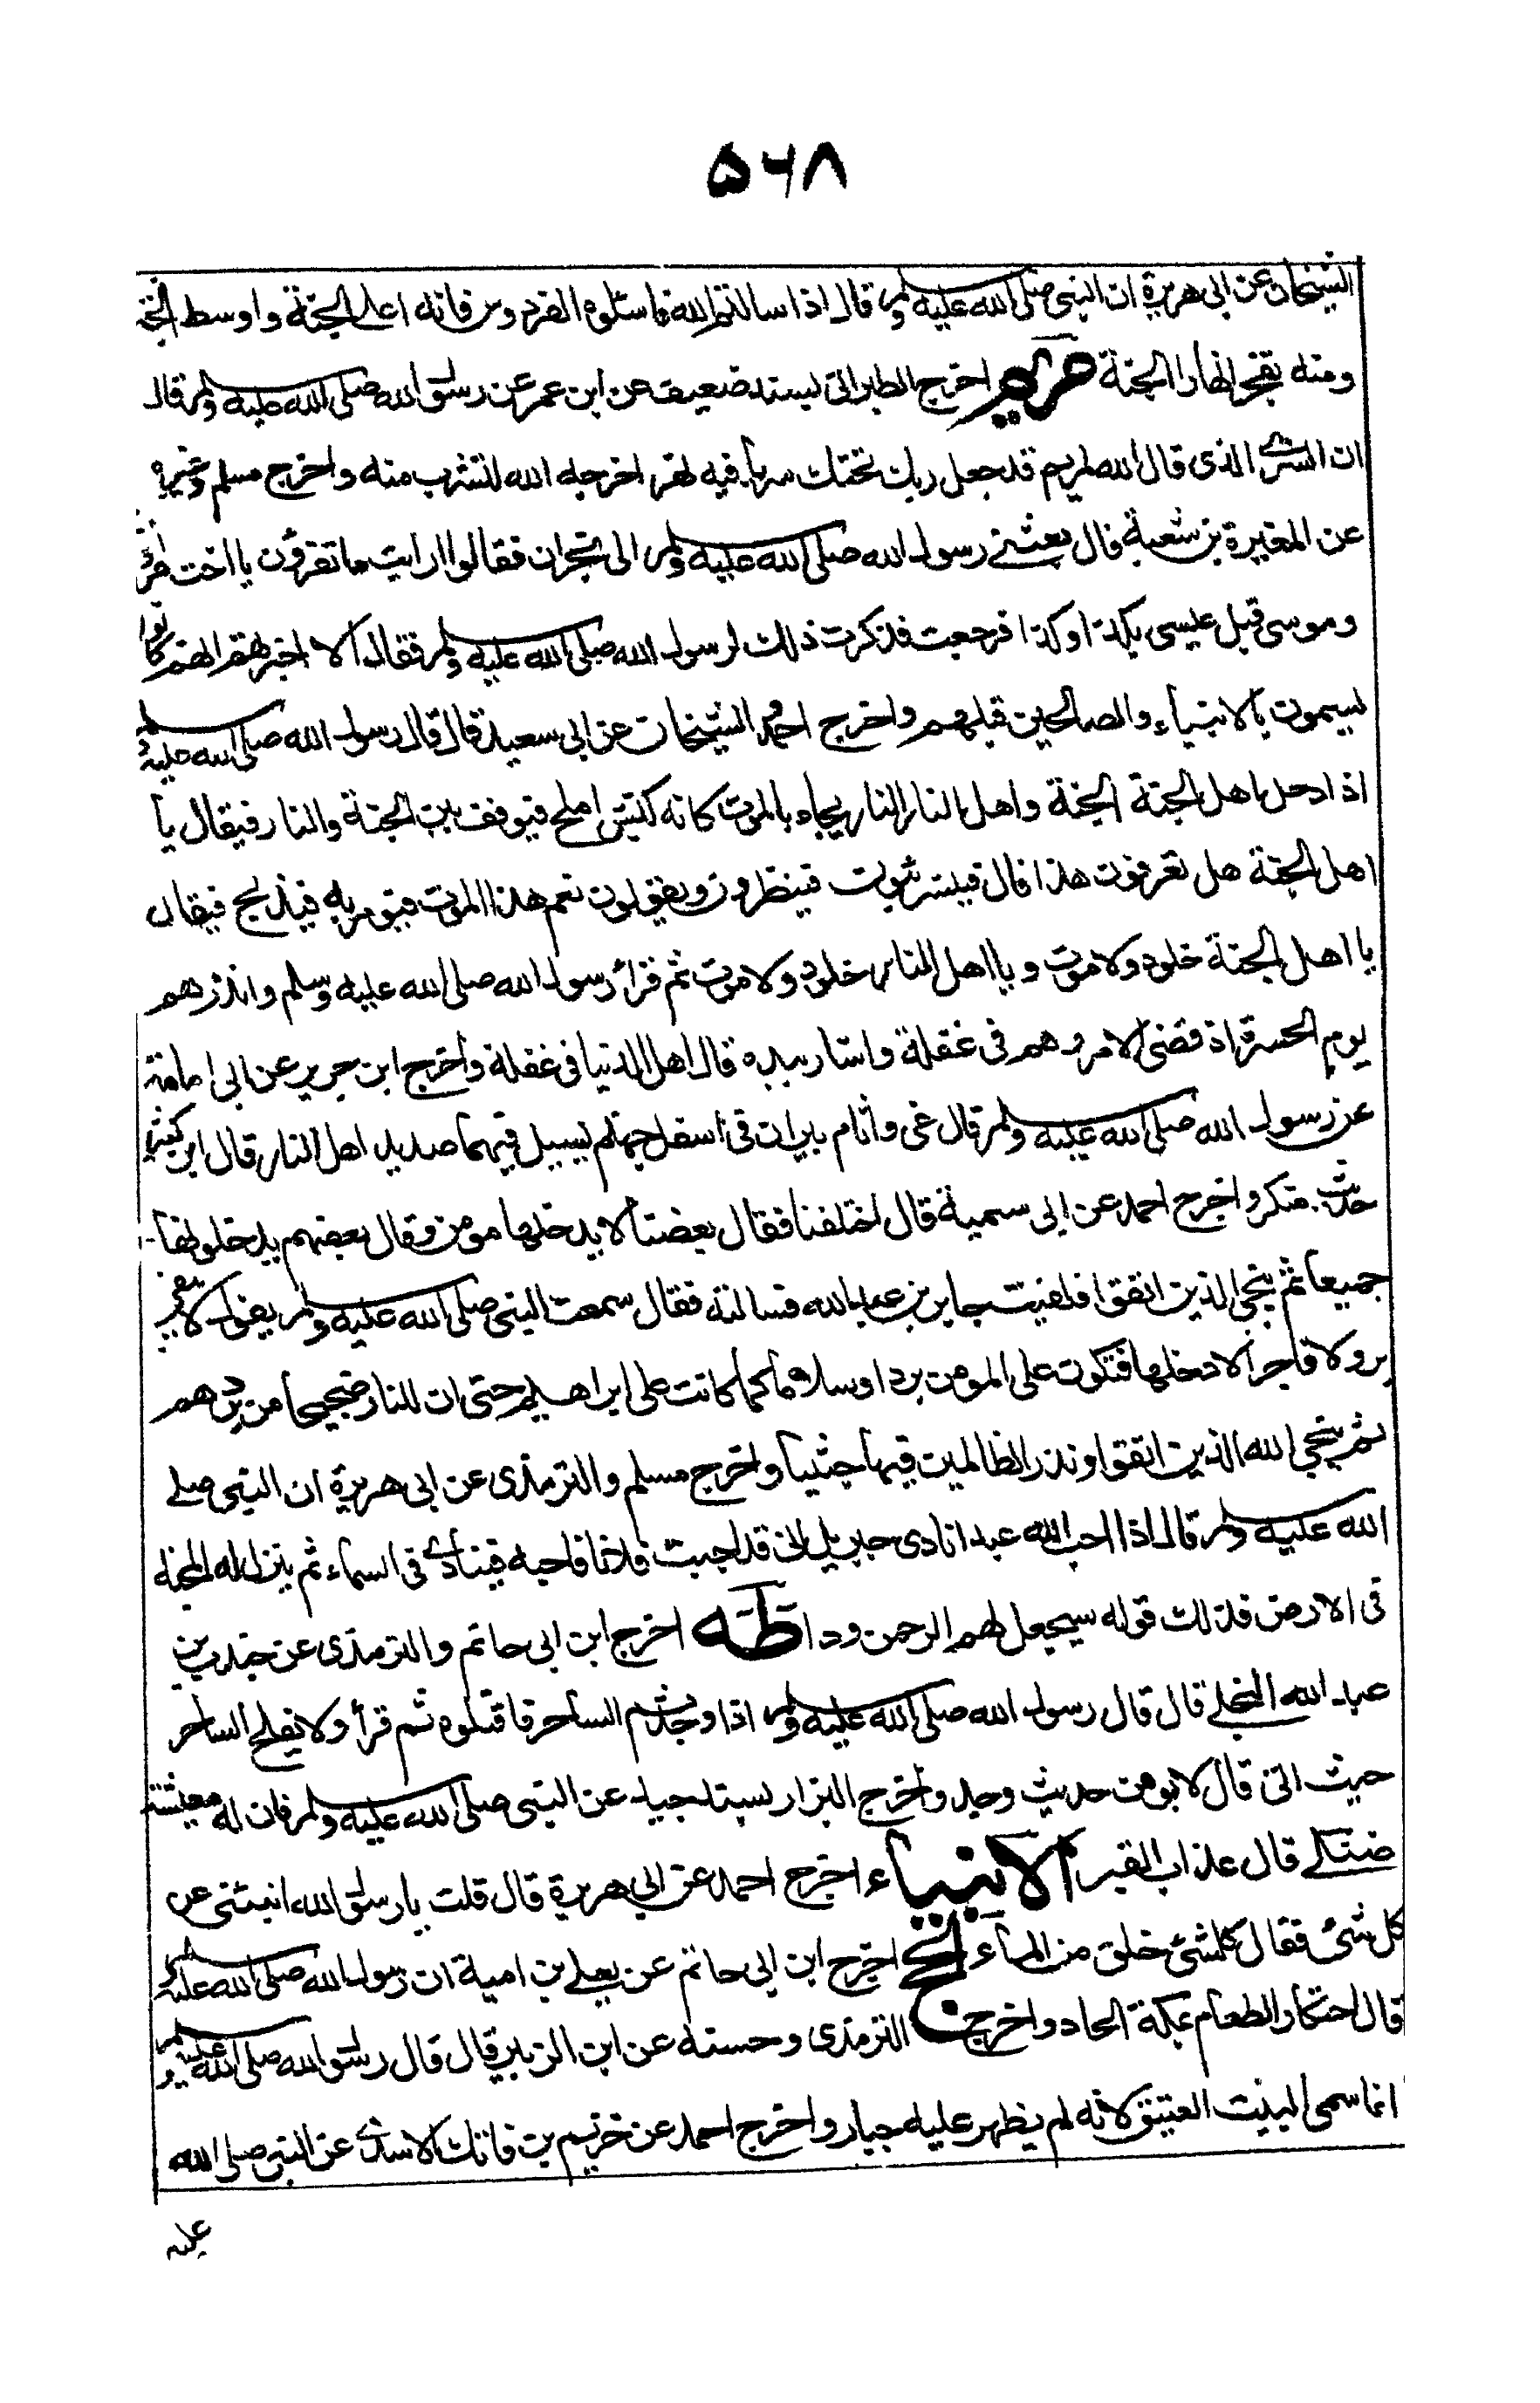 ۵۶۸
الشيخان عن ابى هريرة ان النبى صلى الله عليه ولم قال اذا سالتم الله فاسئلوه الفردوس فانه اعلى الجنة و اوسط الجنة
ومنه تفجر انهار الجنة مريم اخرج الطبرانى بسند ضعيف عن ابن عمر عن رسول الله صلى الله عليه ولم قال
ان السرى الذى قال الله لمريم قد جعل ربك تحتك سريا فيه نهر اخرجه الله لتشرب منه و اخرج مسلم وغيره
عن المغيرة بن شعبة قال بعثنى رسول الله صلى الله عليه ولم الى نجران فقالوا ارايت ما تقرؤن يا اخت هرون
وموسى قبل عيسى بكذا وكذا فرجعت فذكرت ذلك لرسول الله صلى الله عليه ولم فقال الا اخبرتهم انهم كانوا
يسمون بالانبياء والصالحين قبلهم واخرج احمد و الشيخان عن ابى سعيد قال قال رسول الله صلى الله عليه ولم
اذا دخل اهل الجنة الجنة واهل النار النار يجاء بالموت كانه كبش املح فيوقف بين الجنة والنار فيقال يا
اهل الجنة هل تعرفون هذا قال فيشرئبون فينظرون ويقولون نعم هذا الموت فيومر به فيذبح فيقال
يا اهل الجنة خلود ولا موت و يا اهل النار خلود ولا موت ثم قرأ رسول الله صلى الله عليه وسلم وانذرهم
يوم الحسرة اذ قضى الامر وهم فى غفلة واشار بيده قال اهل الدنيا فى غفلة واخرج ابن جرير عن ابى امامة
عن رسول الله صلى الله عليه ولم قال غى واثام بيران فى اسفل جهنم يسيل فيهما صديد اهل النار قال ابن كثير
حديث منكر واخرج احمد عن ابى سمية قال اختلفنا فقال بعضنا لا يدخلها مومن وقال بعضهم يدخلونها
جميعا ثم ينجى الذين اتقوا فلقيت جابر بن عبد الله فسالته فقال سمعت النبى صلى الله عليه ولم يقول لا يبقى
بر ولا فاجر الا دخلها فتكون على المومن بردا وسلاما كما كانت على ابراهيم حتى ان للنار ضجيجا من بردهم
ثم ينجي الله الذين اتقوا ونذر الظالمين فيها جثيا واخرج مسلم والترمذى عن ابى هريرة ان النبى صلى
الله عليه ولم قال اذا احب الله عبدا نادى جبريل انى قد احببت فلانا فاحبه فينادى فى السماء ثم ينزل له المحبة
فى الارض فذلك قوله سيجعل لهم الرحمن ودا طه اخرج ابن ابى حاتم والترمذى عن جندب بن
عبد الله البجلى قال قال رسول الله صلى الله عليه ولم اذا وجدتم الساحر فاقتلوه ثم قرأ ولا يفلح الساحر
حيث اتى قال لا يومن حديث وجد واخرج البزار بسند جيد عن النبى صلى الله عليه ولم فان له معيشة
ضنكا قال عذاب القبر الانبياء اخرج احمد عن ابى هريرة قال قلت يا رسول الله انبئنى عن
كل شئ فقال كل شئ خلق من الماء الحج اخرج ابن ابى حاتم عن يعلى بن امية ان رسول الله صلى الله عليه ولم
قال احتكار الطعام بمكة الحاد واخرج الترمذى وحسنه عن ابن الزبير قال قال رسول الله صلى الله عليه ولم
انما سمى البيت العتيق لانه لم يظهر عليه جبار واخرج احمد عن خريم بن فاتك الاسدى عن النبى صلى الله
عليه